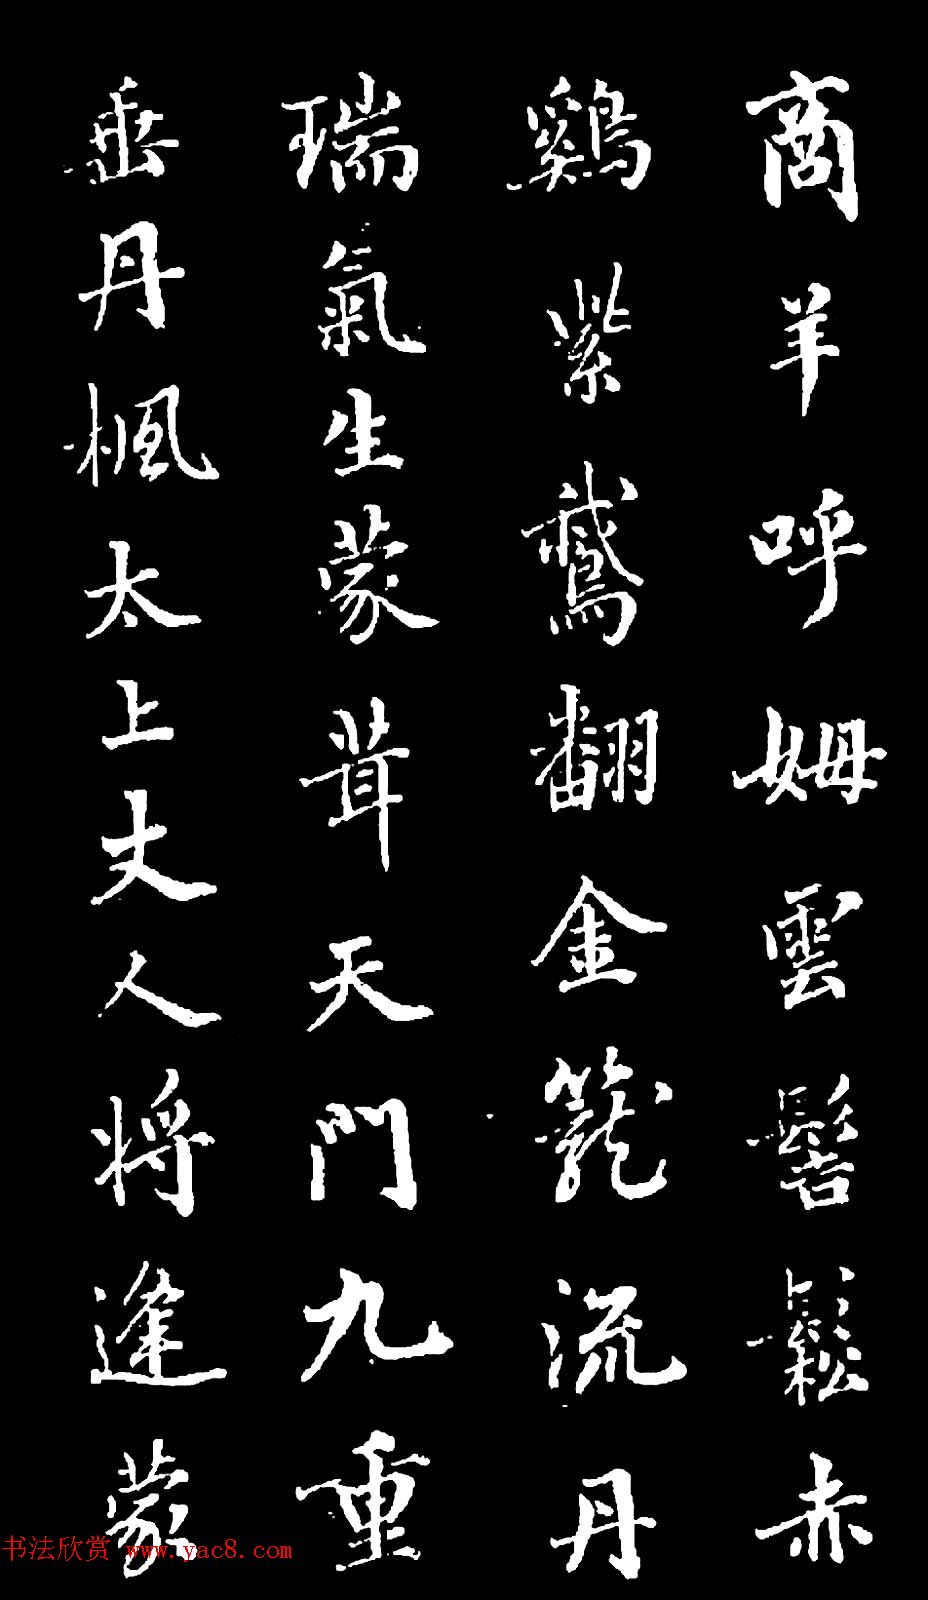 商羊呼姆雲髻鬆赤
鷄紫鸞翻金籠流丹
瑞氣生蒙茸天門九重
垂丹楓太上丈人將逢蒙
书法欣赏 www.yac8.com